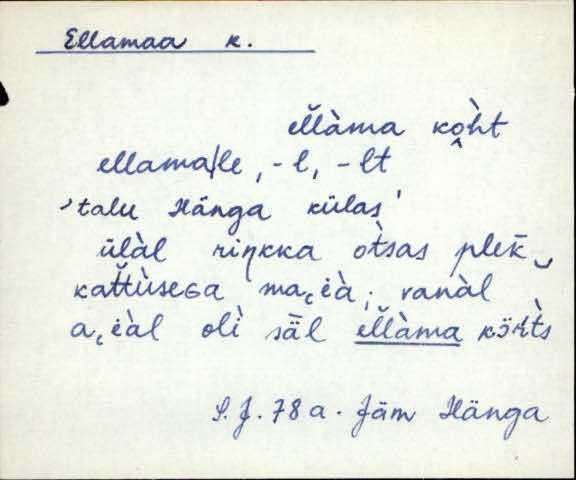 Ellamaa k.
el̆l̆àma ko̭h̀t
ellama|le, -l, -lt
'talu Hänga külas'
ülàl riŋkka ot̀sas plek̄
kat̆t̆ùseɢa maꞔėà; vanàl
aꞔėàl olì sāl el̆l̆àma kört̀s
S.J. 78 a. Jäm Hänga